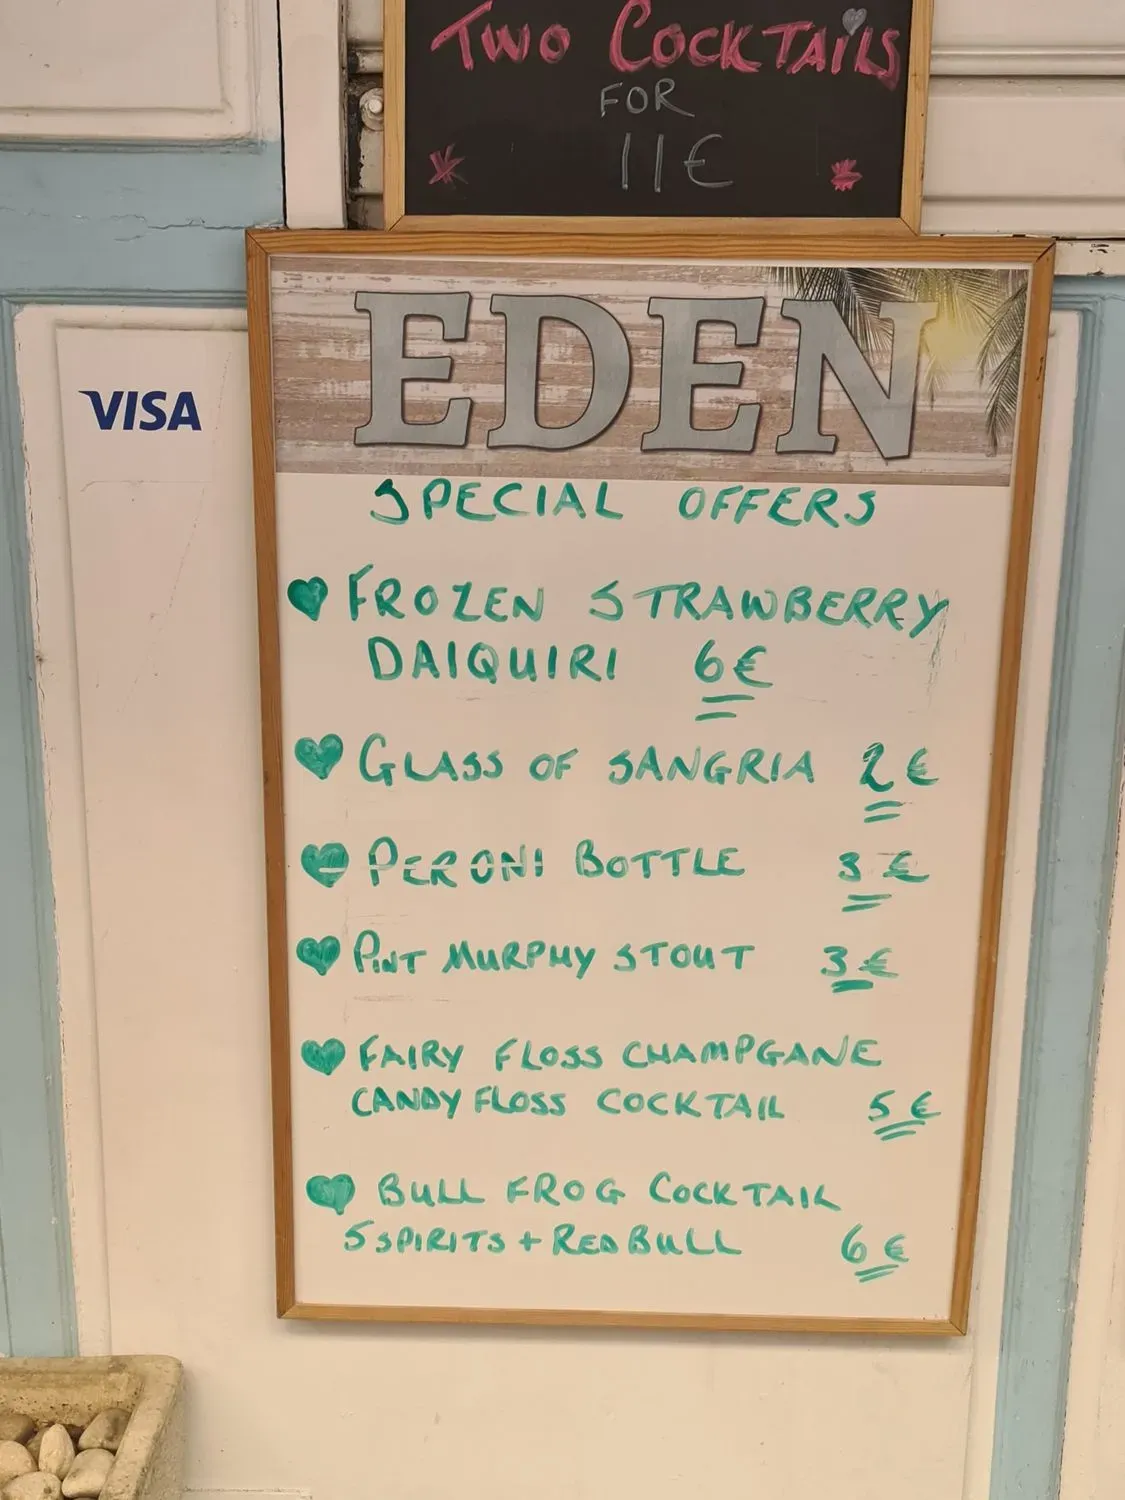 TWO COCKTAILS
FOR
11€
VISA
EDEN
SPECIAL OFFERS
FROZEN STRAWBERRY
DAIQUIRI 6€
GLASS OF SANGRIA 2€
PERONI BOTTLE 3€
PINT MURPHY STOUT 3€
FAIRY FLOSS CHAMPGANE
CANDY FLOSS COCKTAIL 5€
BULL FROG COCKTAIL
5 SPIRITS + RED BULL 6€